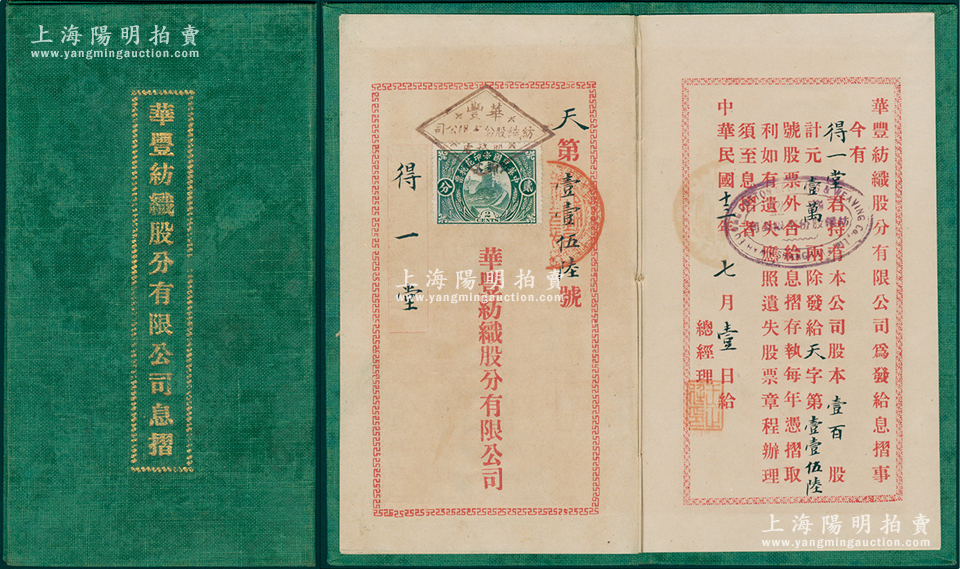 上海陽明拍賣
www.yangmingauction.com
華豐紡織股分有限公司息摺
華豐
紡織股份有限公司
天第壹壹伍陸號
分 貳
2
CENTS
得一堂
華豐紡織股分有限公司
華豐紡織股分有限公司為發給息摺事
今有得一堂君持有本公司股本壹百股
計元壹萬兩除發給天字第壹壹伍陸
號股票外合給息摺存執每年憑摺取
利如有遺失應照遺失股票章程辦理
須至息摺者
中華民國十三年七月壹日給
總經理
上海陽明拍賣
www.yangmingauction.com